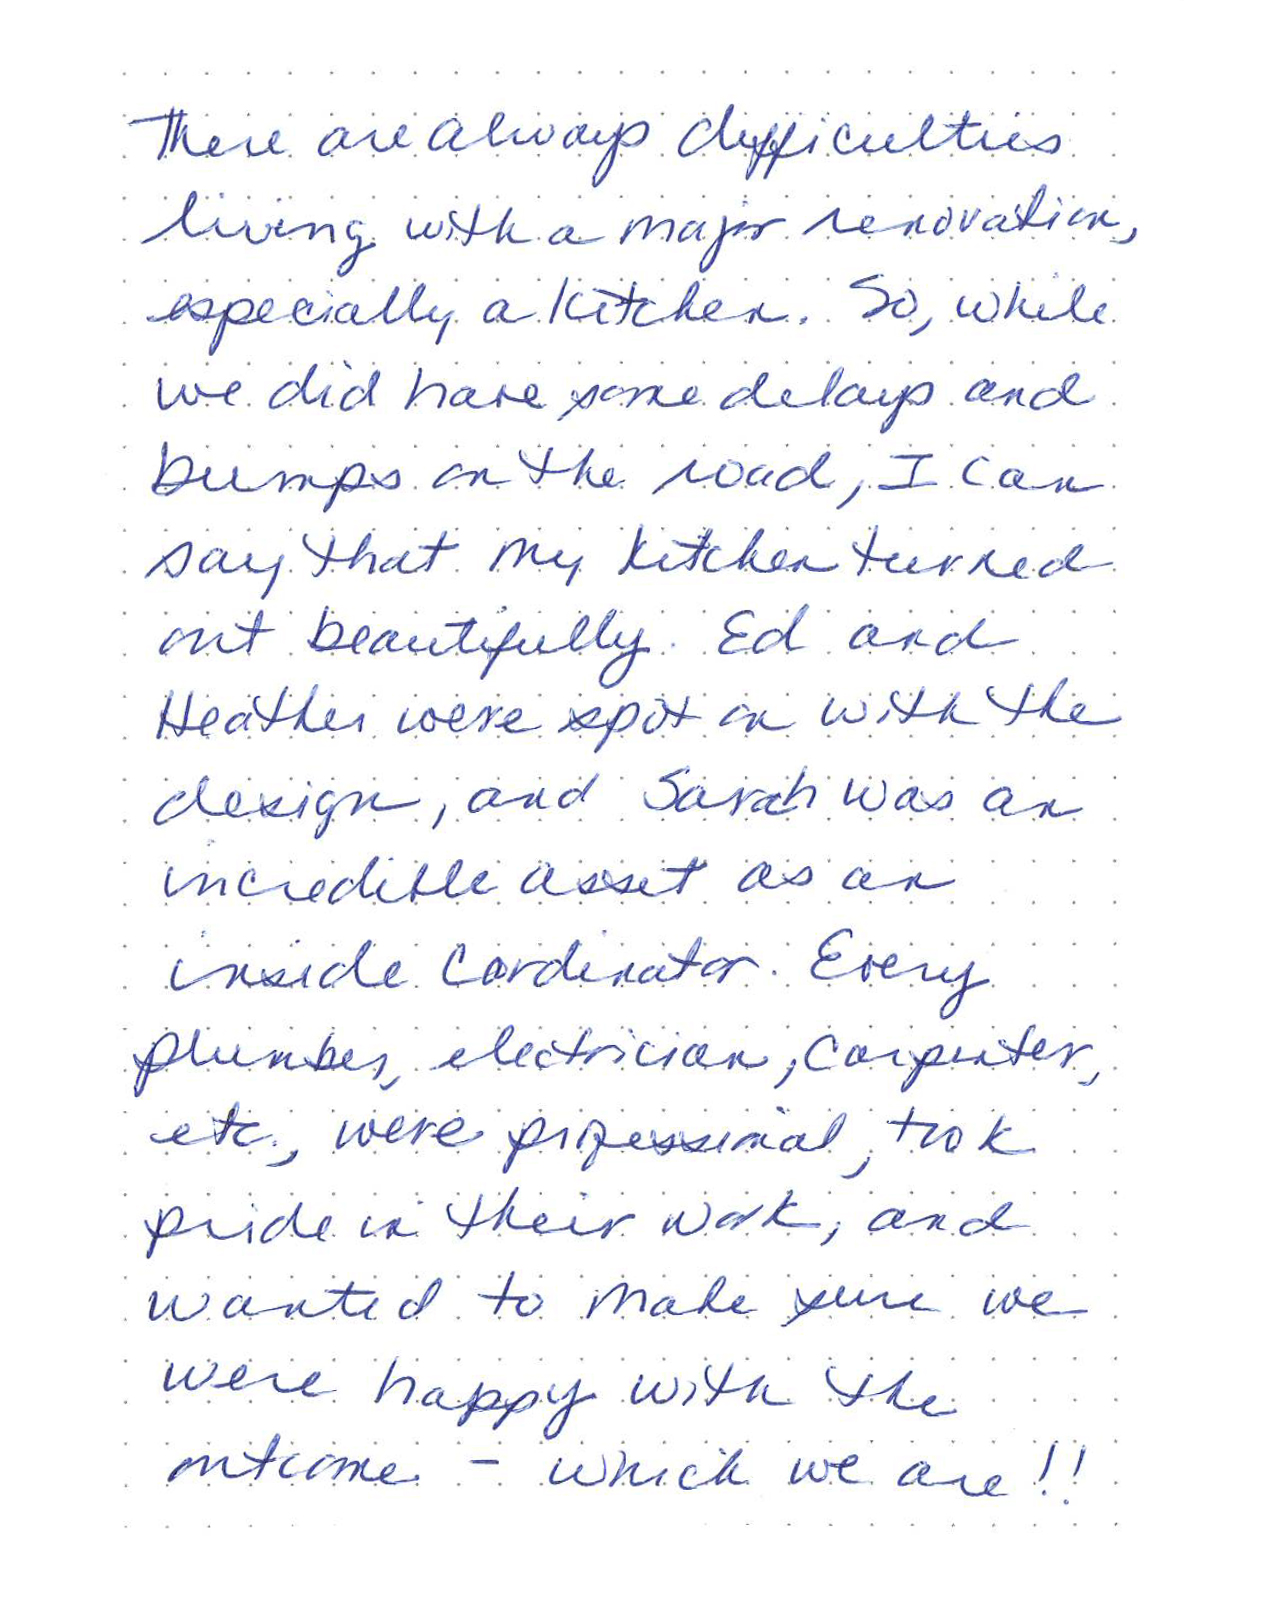 There are always difficulties
living with a major renovation,
especially a kitchen. So, while
we did have some delays and
bumps on the road, I can
say that my kitchen turned
out beautifully. Ed and
Heather were spot on with the
design, and Sarah was an
incredible asset as an
inside cordinator. Every
plumber, electrician, carpenter,
etc., were professional, took
pride in their work, and
wanted to make sure we
were happy with the
outcome - which we are!!